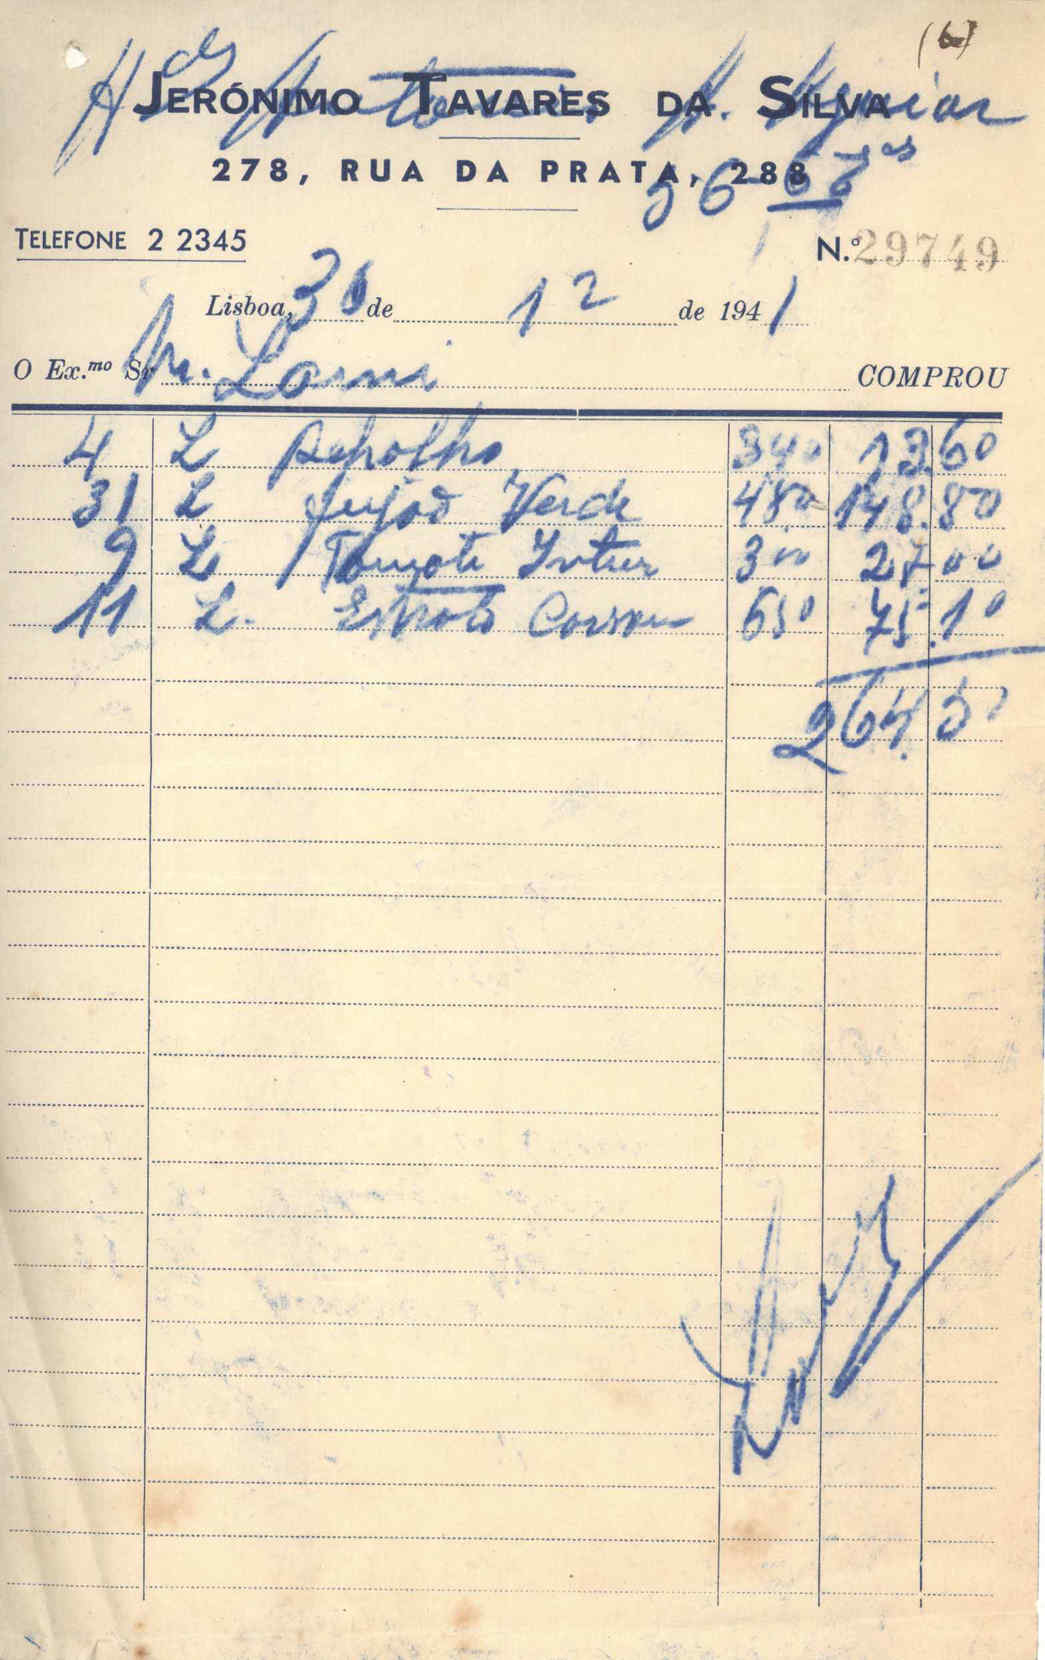 (6)
JERÓNIMO TAVARES DA SILVA
278, RUA DA PRATA, 288
56-6
TELEFONE 2 2345
N.º 29749
Lisboa, 30 de 12 de 1941
O Ex.mo Sr COMPROU
4 L Repolho 340 13.60
31 L feijão Verde 480 148.80
9 L Tomate 300 27.00
11 L. 650 75.10
264.50